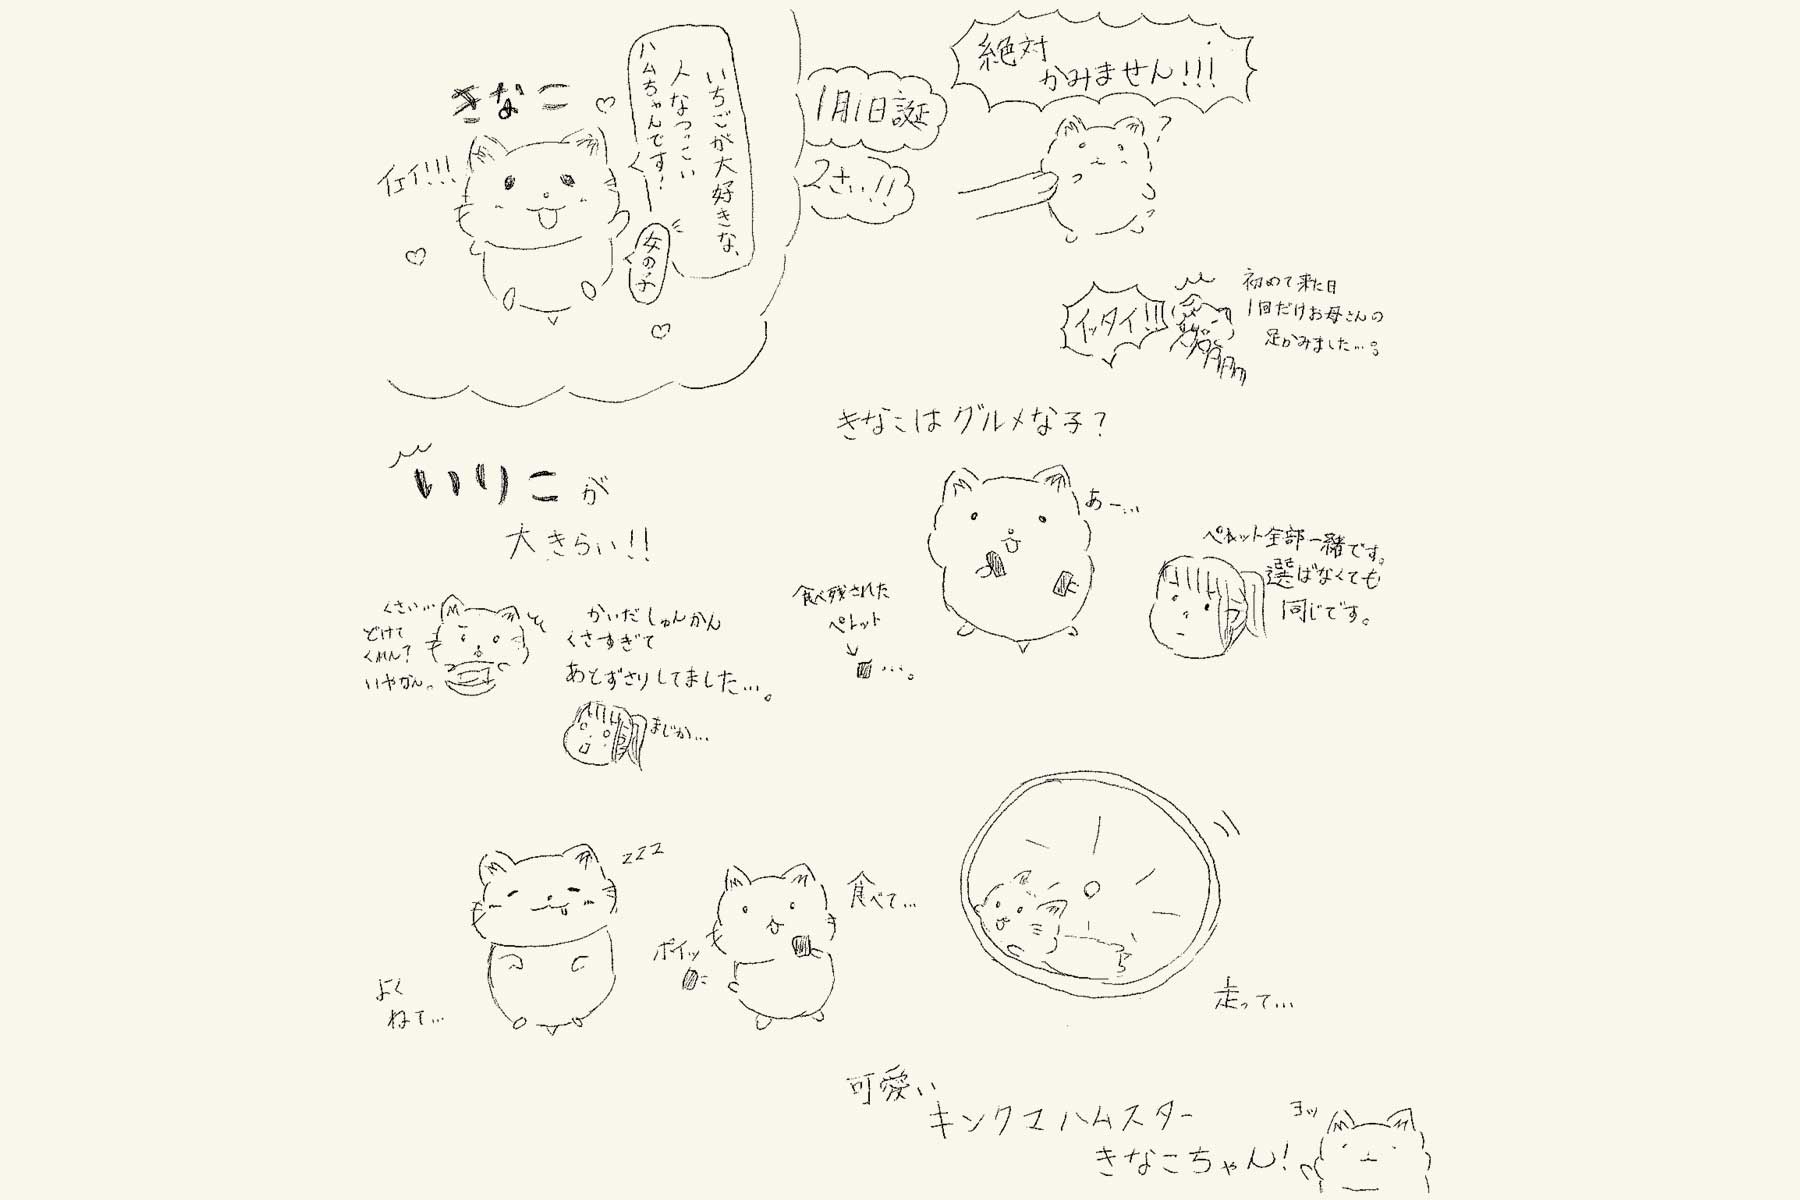 きなこ
イェイ!!!
いちごが大好きな、
人なつっこい
ハムちゃんです!
女の子
1月1日誕
2さい!!
絶対
かみません!!!
?
イッタイ!!!
初めて来た日
1回だけお母さんの
足かみました…。
きなこはグルメな子?
いりこが
大きらい!!
くさい…
どけて
くれん?
いやがん。
かいだしゅんかん
くさすぎて
あとずさりしてました…。
まじか…
あー…
食べ残された
ペレット
↓
…。
ペレット全部一緒です。
選ばなくても
同じです。
zzz
よく
ねて…
ポイッ
食べて…
走って…
可愛い
キンクマハムスター
きなこちゃん!
ヨッ